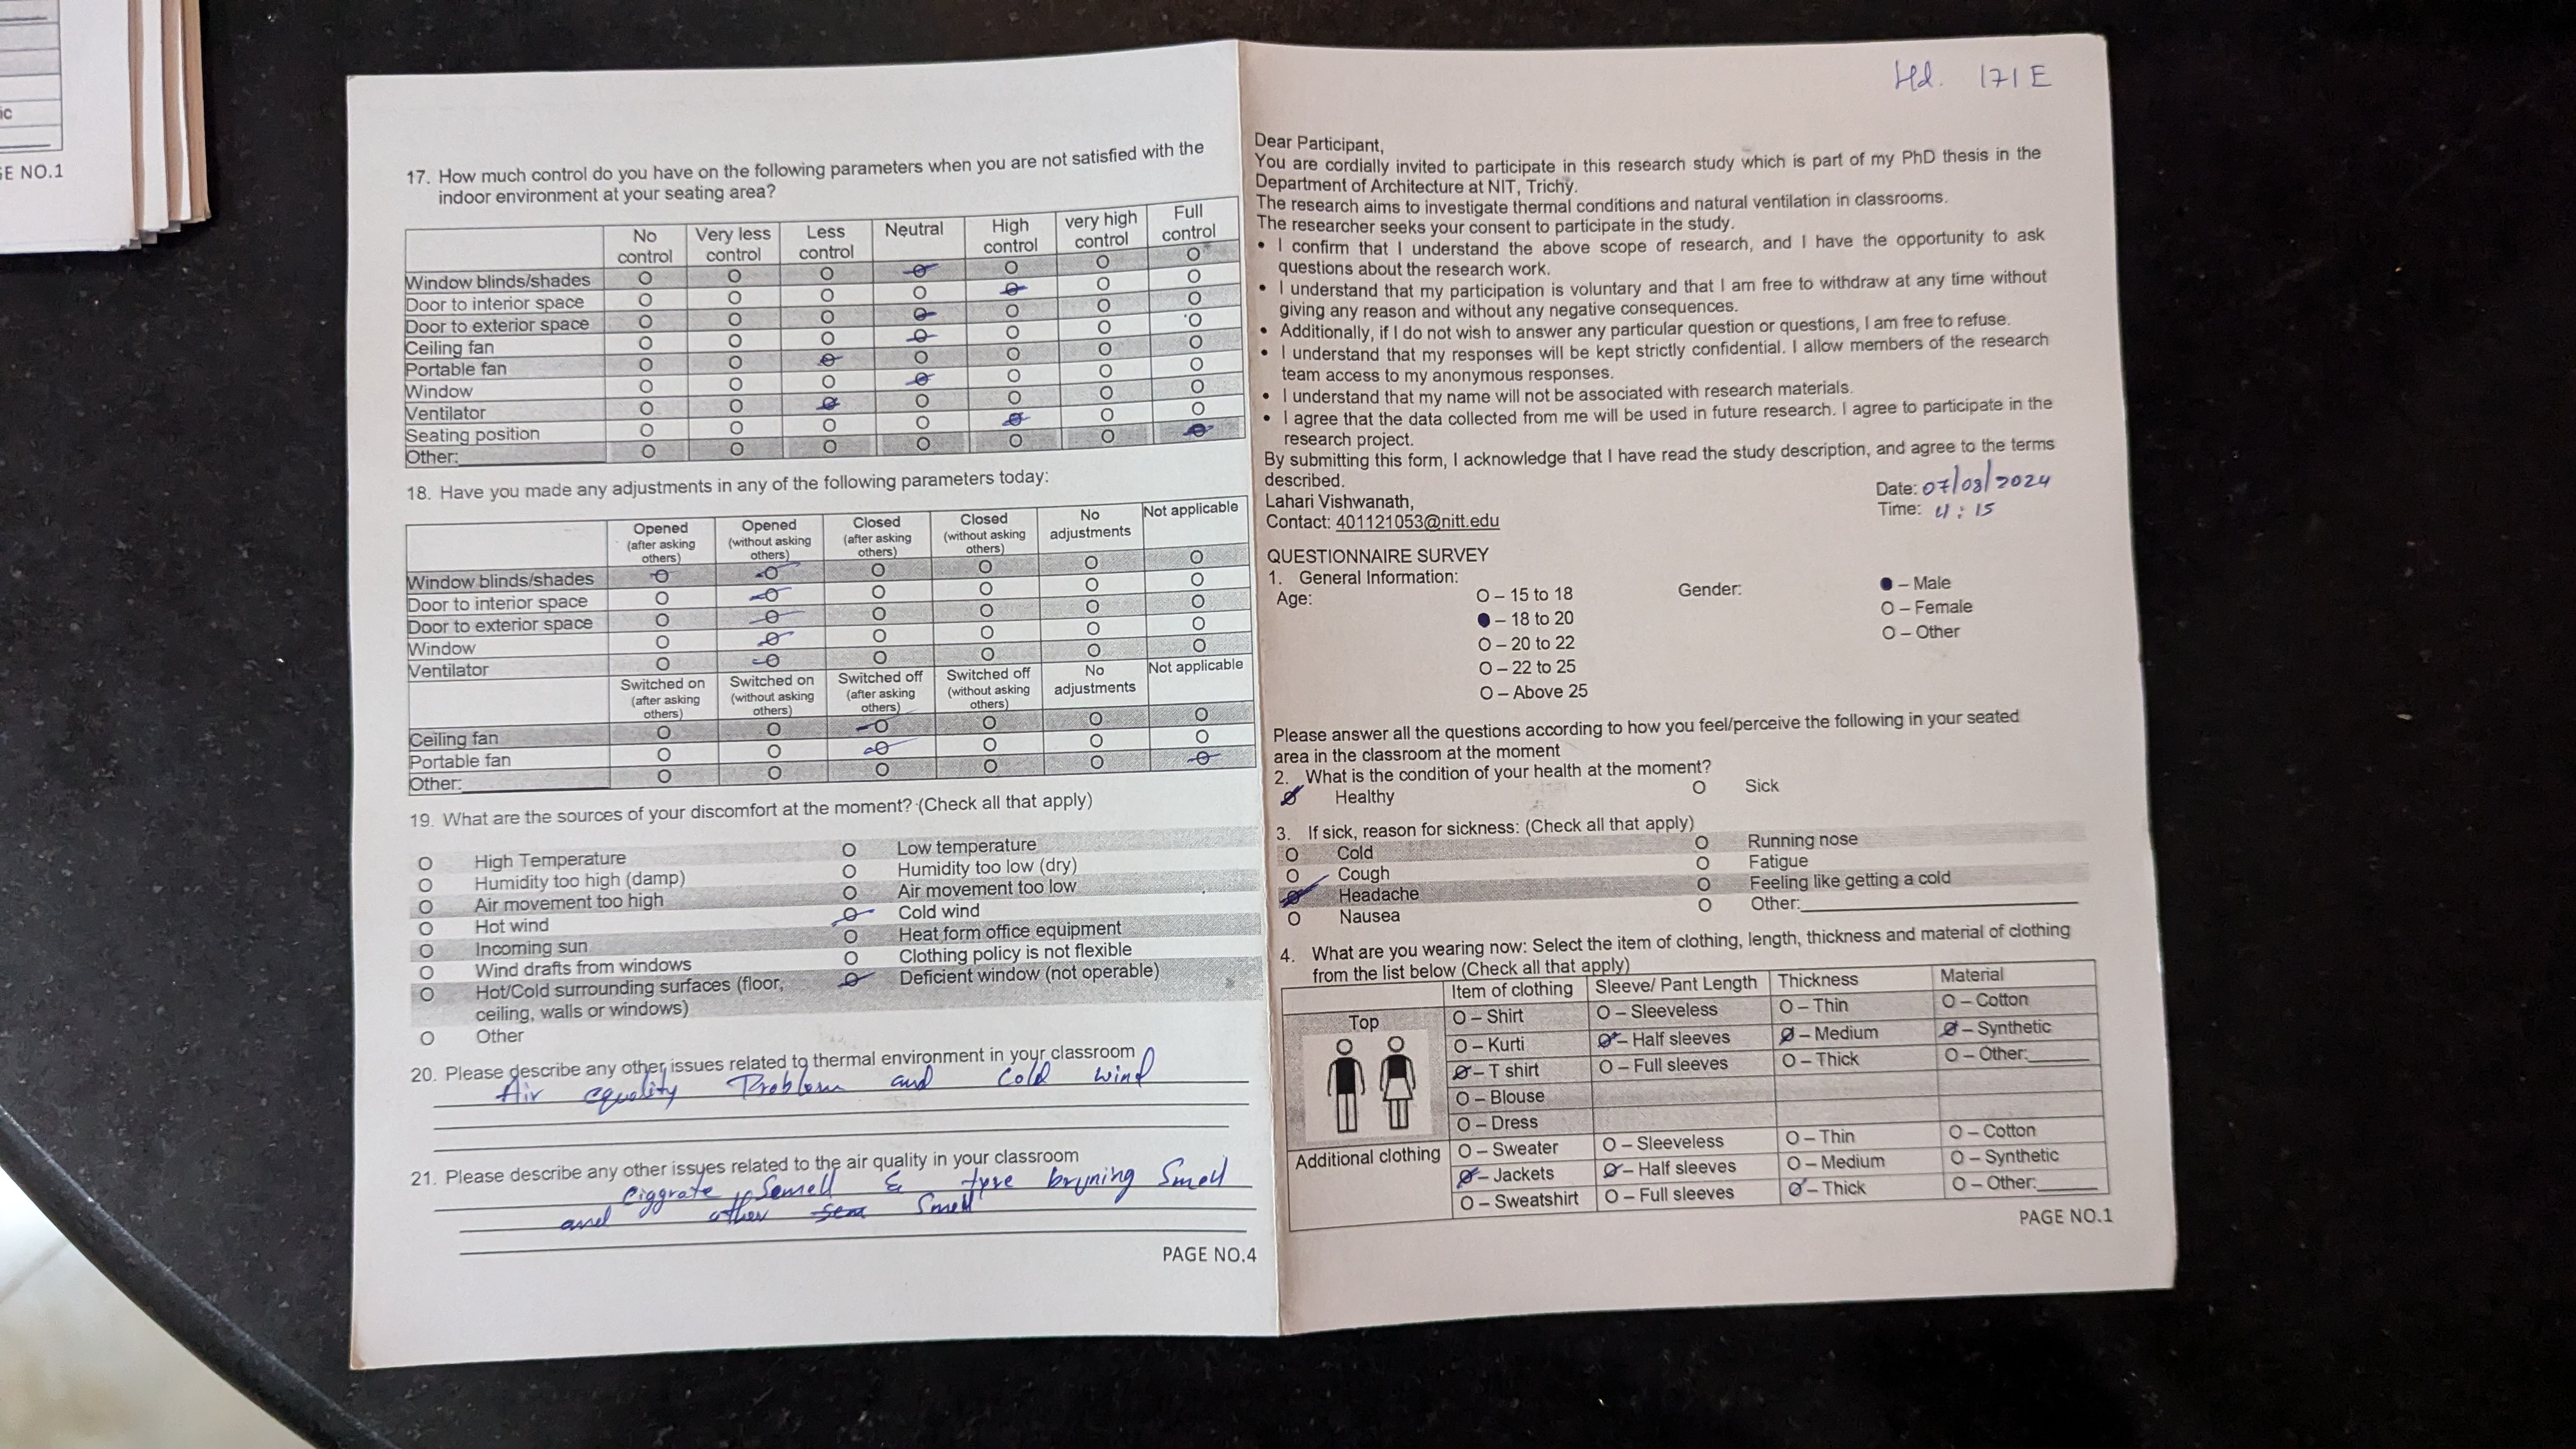 ic
GE NO.1
17. How much control do you have on the following parameters when you are not satisfied with the
indoor environment at your seating area?
No control Very less control Less control Neutral High control very high control Full control
Window blinds/shades O O O O O O O
Door to interior space O O O O O O O
Door to exterior space O O O O O O O
Ceiling fan O O O O O O O
Portable fan O O O O O O O
Window O O O O O O O
Ventilator O O O O O O O
Seating position O O O O O O O
Other: O O O O O O O
18. Have you made any adjustments in any of the following parameters today:
Opened (after asking others) Opened (without asking others) Closed (after asking others) Closed (without asking others) No adjustments Not applicable
Window blinds/shades O O O O O O
Door to interior space O O O O O O
Door to exterior space O O O O O O
Window O O O O O O
Ventilator O O O O O O
Switched on (after asking others) Switched on (without asking others) Switched off (after asking others) Switched off (without asking others) No adjustments Not applicable
Ceiling fan O O O O O O
Portable fan O O O O O O
Other: O O O O O O
19. What are the sources of your discomfort at the moment? (Check all that apply)
O High Temperature O Low temperature
O Humidity too high (damp) O Humidity too low (dry)
O Air movement too high O Air movement too low
O Hot wind O Cold wind
O Incoming sun O Heat form office equipment
O Wind drafts from windows O Clothing policy is not flexible
O Hot/Cold surrounding surfaces (floor, O Deficient window (not operable)
ceiling, walls or windows)
O Other
20. Please describe any other issues related to thermal environment in your classroom
Air equality Problem and cold wind
21. Please describe any other issues related to the air quality in your classroom
Ciggrate Semell & tyre bryning Smell
and other Smell
PAGE NO.4
171 E
Dear Participant,
You are cordially invited to participate in this research study which is part of my PhD thesis in the
Department of Architecture at NIT, Trichy.
The research aims to investigate thermal conditions and natural ventilation in classrooms.
The researcher seeks your consent to participate in the study.
• I confirm that I understand the above scope of research, and I have the opportunity to ask
questions about the research work.
• I understand that my participation is voluntary and that I am free to withdraw at any time without
giving any reason and without any negative consequences.
• Additionally, if I do not wish to answer any particular question or questions, I am free to refuse.
• I understand that my responses will be kept strictly confidential. I allow members of the research
team access to my anonymous responses.
• I understand that my name will not be associated with research materials.
• I agree that the data collected from me will be used in future research. I agree to participate in the
research project.
By submitting this form, I acknowledge that I have read the study description, and agree to the terms
described.
Lahari Vishwanath,
Contact: 401121053@nitt.edu
Date: 07/08/2024
Time: 4:15
QUESTIONNAIRE SURVEY
1. General Information:
Age:
O – 15 to 18
● – 18 to 20
O – 20 to 22
O – 22 to 25
O – Above 25
Gender:
● – Male
O – Female
O – Other
Please answer all the questions according to how you feel/perceive the following in your seated
area in the classroom at the moment
2. What is the condition of your health at the moment?
O Healthy O Sick
3. If sick, reason for sickness: (Check all that apply)
O Cold O Running nose
O Cough O Fatigue
O Headache O Feeling like getting a cold
O Nausea O Other:
4. What are you wearing now: Select the item of clothing, length, thickness and material of clothing
from the list below (Check all that apply)
Item of clothing Sleeve/ Pant Length Thickness Material
Top
O – Shirt O – Sleeveless O – Thin O – Cotton
O – Kurti O – Half sleeves O – Medium O – Synthetic
O – T shirt O – Full sleeves O – Thick O – Other:
O – Blouse
O – Dress
Additional clothing
O – Sweater O – Sleeveless O – Thin O – Cotton
O – Jackets O – Half sleeves O – Medium O – Synthetic
O – Sweatshirt O – Full sleeves O – Thick O – Other:
PAGE NO.1